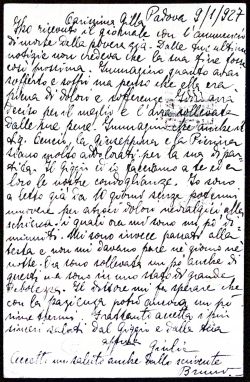 Carissima Gilla Padova 9/1/927
Ho ricevuto il giornale con l'annuncio di
morte della povera zia. Dalle tue ultime
notizie non credevo che la sua fine fosse
così prossima. Immagino quanto avrai
sofferto e soffri ma penso che ella era
piena di dolori e sofferenze. Iddio avrà
deciso per il meglio e l'avrà sollevata
dalle sue pene. Immagino che anche
la Peppina e la Pierina
siano molto addolorati per la sua di par-
tita. Il Giggio ed io facciamo a te ed a
loro le nostre condoglianze. Io sono
a letto già da 11 giorni senza potermi
muovere per atroci dolori nevralgici alla
schiena, i quali ora mi sono un po' di-
minuiti. Mi sono invece passati alla
testa e non mi davano pace né giorno né
notte. Ora sono sollevata un po' anche di
questi ma sono in uno stato di grande
debolezza. Il dottore mi fa sperare che
con la pazienza potrò ancora un po'
rimettermi. Frattanto accetta i più
sinceri saluti dal Giggio e dalla tua
aff.ma Giulia
Accetti un saluto anche dallo scrivente
Bruno